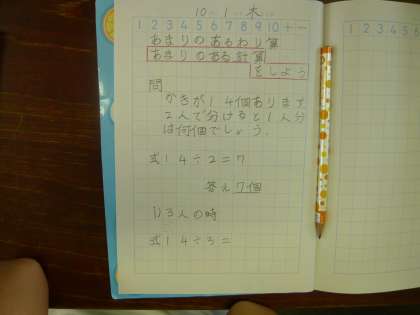 10 1 木
1 2 3 4 5 6 7 8 9 10 + -
あまりのあるわり算
あまりのある計算
をしよう
問
かきが14個あります。
2人で分けると1人分
は何個でしょう。
式14÷2=7
答え7個
1)3人の時
式14÷3=
1 2 3 4 5 6